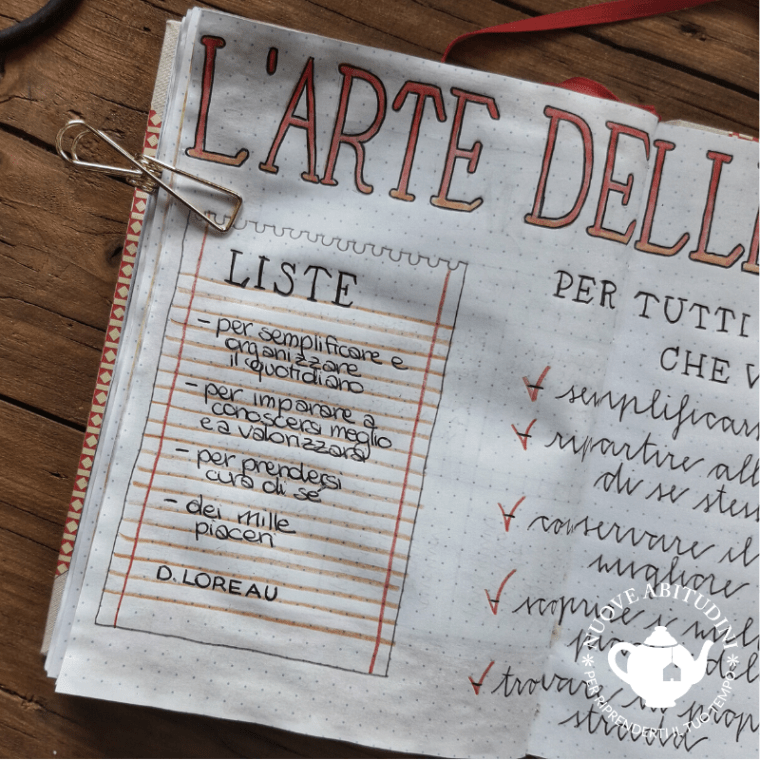 L'ARTE DELL
LISTE
- per semplificare e
organizzare
il quotidiano
- per imparare a
conoscersi meglio
e a valorizzarsi
- per prendersi
cura di sé
- dei mille
piaceri
D. LOREAU
PER TUTTI
CHE V
semplificars
ripartire all
di se stess
conservare il
migliore
scoprire i mil
trovare la prop
strada
NUOVE ABITUDINI
PER RIPRENDERTI IL TUO TEMPO